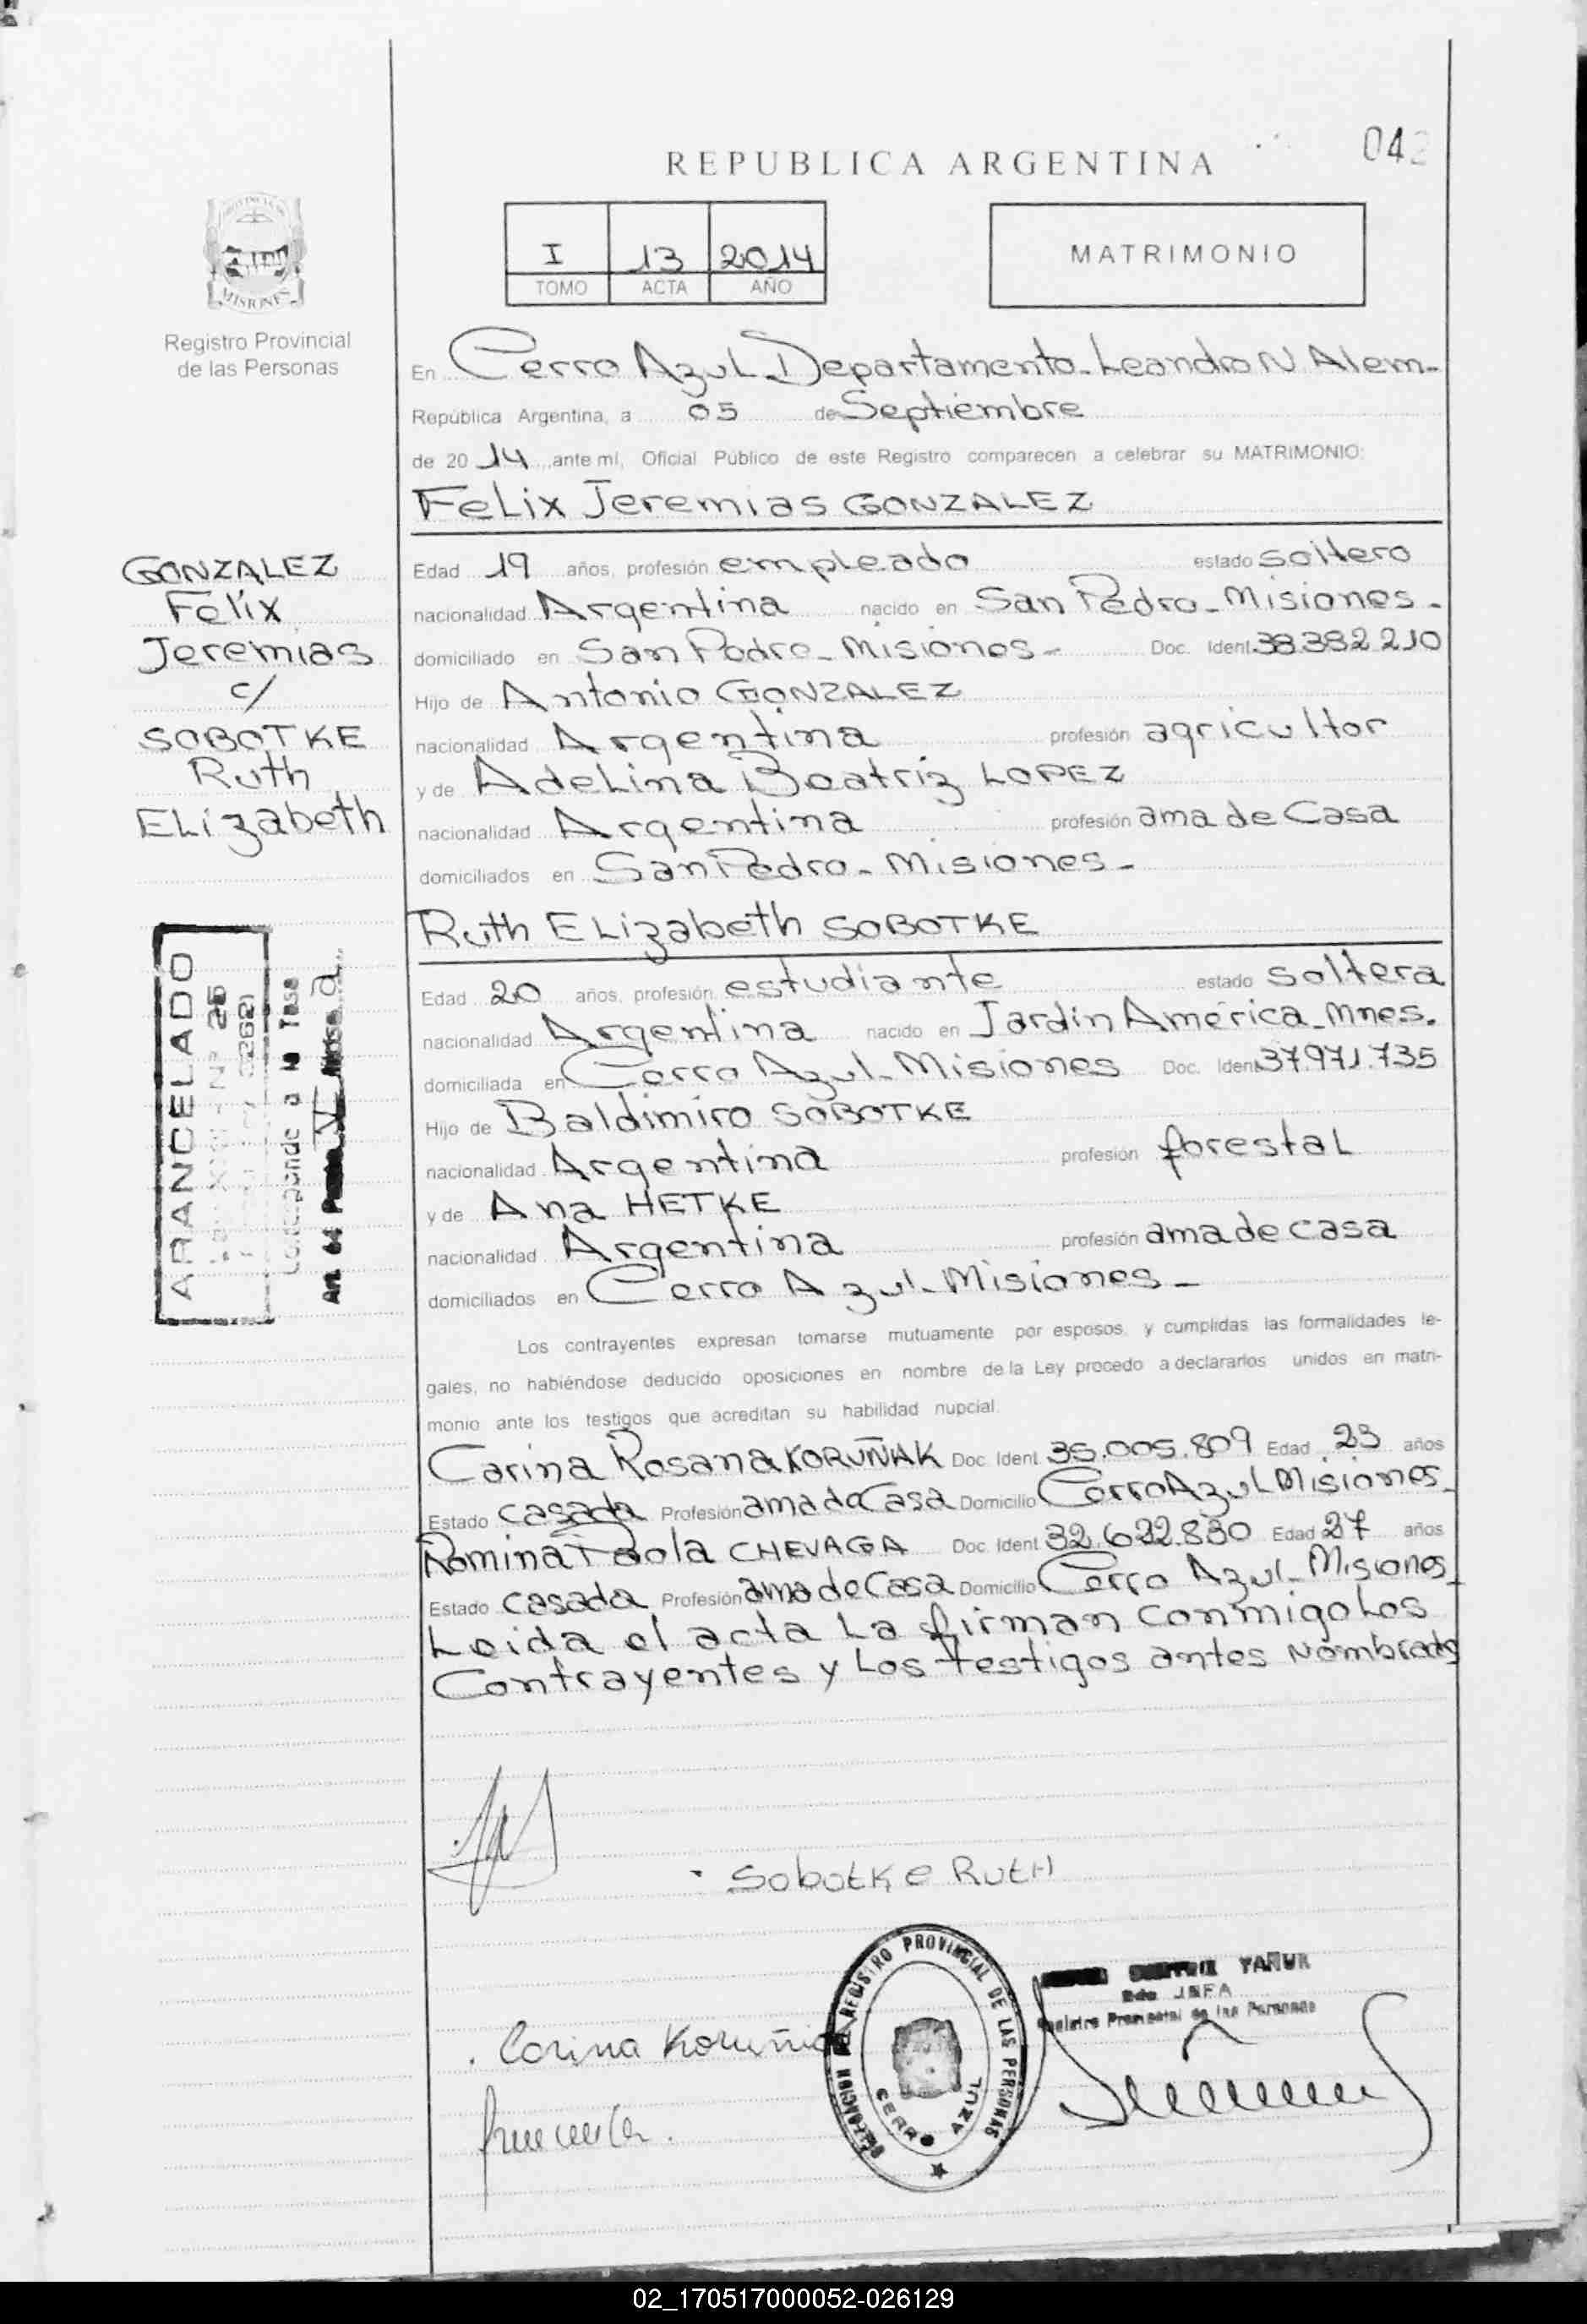 REPUBLICA ARGENTINA
04
I 13 2014
TOMO ACTA AÑO
MATRIMONIO
MISIONES
Registro Provincial
de las Personas
En Cerro Azul Departamento Leandro N Alem-
República Argentina, a 05 de Septiembre
de 2014 ante mí, Oficial Público de este Registro comparecen a celebrar su MATRIMONIO:
Felix Jeremias GONZALEZ
GONZALEZ
Felix
Jeremias
c/
SOBOTKE
Ruth
Elizabeth
Edad 19 años, profesión empleado estado soltero
nacionalidad Argentina nacido en San Pedro - Misiones -
domiciliado en San Pedro - Misiones - Doc. Ident. 38.382.210
Hijo de Antonio GONZALEZ
nacionalidad Argentina profesión agricultor
y de Adelina Beatriz LOPEZ
nacionalidad Argentina profesión ama de Casa
domiciliados en San Pedro - Misiones -
Ruth Elizabeth SOBOTKE
Edad 20 años, profesión estudiante estado soltera
nacionalidad Argentina nacido en Jardín América - Mnes.
domiciliada en Cerro Azul - Misiones Doc. Ident. 37.971.735
Hijo de Baldimiro SOBOTKE
nacionalidad Argentina profesión forestal
y de Ana HETKE
nacionalidad Argentina profesión ama de casa
domiciliados en Cerro Azul - Misiones -
ARANCELADO
a la Tasa
Los contrayentes expresan tomarse mutuamente por esposos, y cumplidas las formalidades le-
gales, no habiéndose deducido oposiciones en nombre de la Ley procedo a declararlos unidos en matri-
monio ante los testigos que acreditan su habilidad nupcial.
Carina Rosana KORUÑAK Doc. Ident. 35.005.809 Edad 23 años
Estado casada Profesión ama de Casa Domicilio Cerro Azul Misiones
Romina Paola CHEVAGA Doc. Ident. 32.622.830 Edad 27 años
Estado casada Profesión ama de Casa Domicilio Cerro Azul - Misiones
Leida el acta La firman conmigo Los
Contrayentes y Los testigos antes Nombrados
Sobotke Ruth
Carina Koruña
DELEGACION DEL REGISTRO PROVINCIAL DE LAS PERSONAS
CERRO AZUL
YAÑUK
JEFA
Registro Provincial de las Personas
02_170517000052-026129